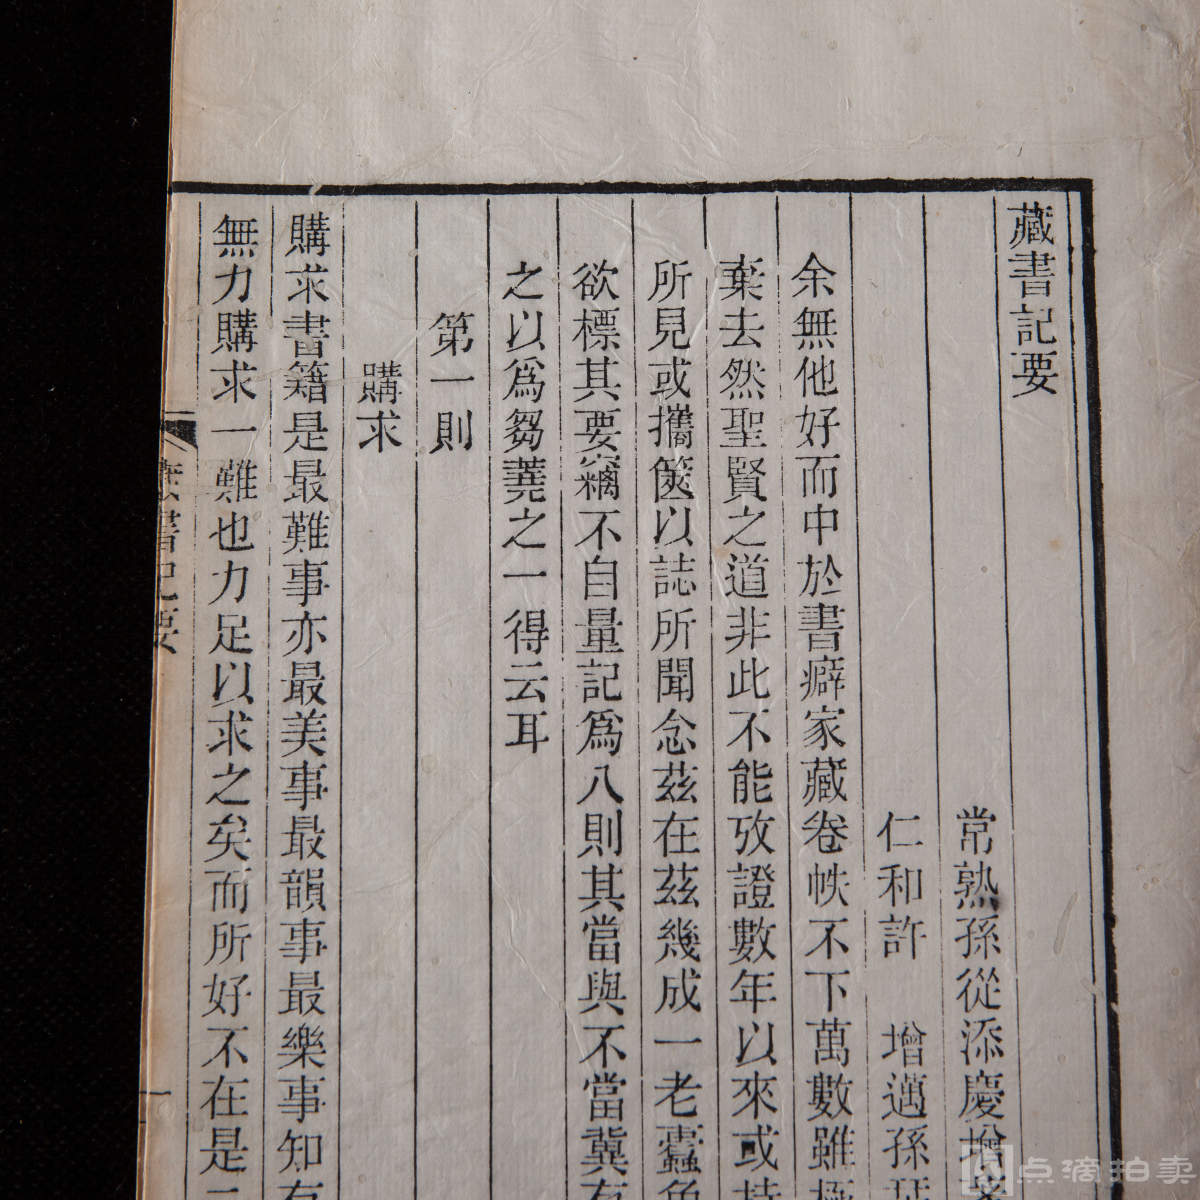 藏書記要
常熟孫從添慶增
仁和許　增邁孫
余無他好而中於書癖家藏卷帙不下萬數雖極
棄去然聖賢之道非此不能攷證數年以來或持
所見或攜篋以誌所聞念茲在茲幾成一老蠹魚
欲標其要竊不自量記爲八則其當與不當冀有
之以爲芻蕘之一得云耳
第一則
購求
購求書籍是最難事亦最美事最韻事最樂事知有
無力購求一難也力足以求之矣而所好不在是二
書記要
一
点滴拍卖